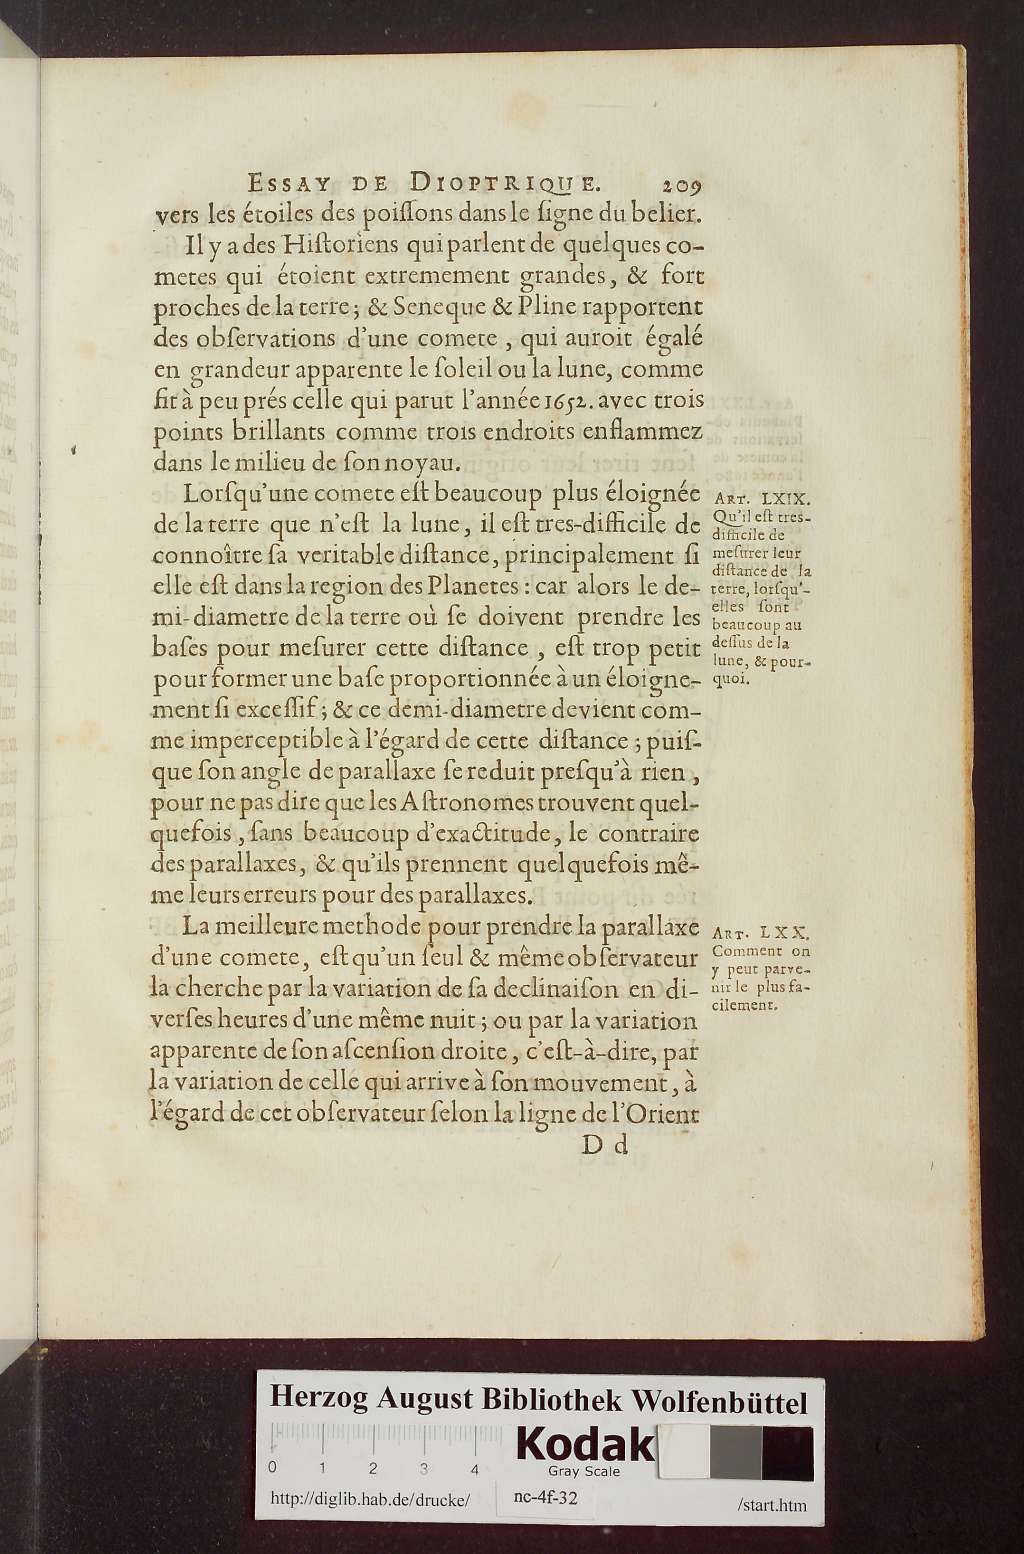 ESSAY DE DIOPTRIQUE. 209
vers les étoiles des poiſſons dans le ſigne du belier.
Il y a des Hiſtoriens qui parlent de quelques co-
metes qui étoient extremement grandes, & fort
proches de la terre; & Seneque & Pline rapportent
des obſervations d'une comete, qui auroit égalé
en grandeur apparente le ſoleil ou la lune, comme
fit à peu prés celle qui parut l'année 1652. avec trois
points brillants comme trois endroits enflammez
dans le milieu de ſon noyau.
Lorſqu'une comete eſt beaucoup plus éloignée
de la terre que n'eſt la lune, il eſt tres-difficile de
connoître ſa veritable diſtance, principalement ſi
elle eſt dans la region des Planetes: car alors le de-
mi-diametre de la terre où ſe doivent prendre les
baſes pour meſurer cette diſtance, eſt trop petit
pour former une baſe proportionnée à un éloigne-
ment ſi exceſſif; & ce demi-diametre devient com-
me imperceptible à l'égard de cette diſtance; puiſ-
que ſon angle de parallaxe ſe reduit preſqu'à rien,
pour ne pas dire que les Aſtronomes trouvent quel-
quefois, ſans beaucoup d'exactitude, le contraire
des parallaxes, & qu'ils prennent quelquefois mê-
me leurs erreurs pour des parallaxes.
La meilleure methode pour prendre la parallaxe
d'une comete, eſt qu'un ſeul & même obſervateur
la cherche par la variation de ſa declinaiſon en di-
verſes heures d'une même nuit; ou par la variation
apparente de ſon aſcenſion droite, c'eſt-à-dire, par
la variation de celle qui arrive à ſon mouvement, à
l'égard de cet obſervateur ſelon la ligne de l'Orient
D d
ART. LXIX.
Qu'il eſt tres-
difficile de
meſurer leur
diſtance de la
terre, lorſqu'-
elles ſont
beaucoup au
deſſus de la
lune, & pour-
quoi.
ART. LXX.
Comment on
y peut parve-
nir le plus fa-
cilement.
Herzog August Bibliothek Wolfenbüttel
Kodak
Gray Scale
0 1 2 3 4
http://diglib.hab.de/drucke/ nc-4f-32 /start.htm